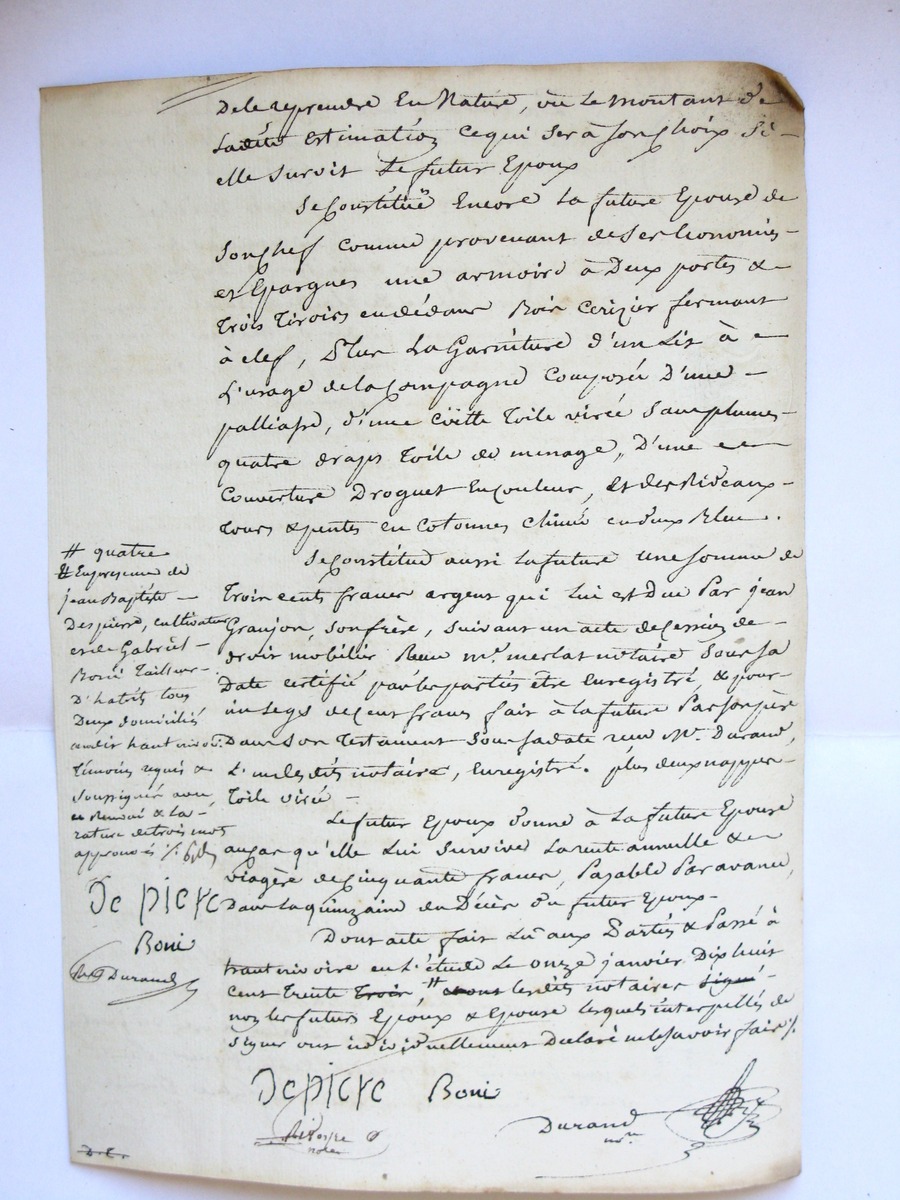 De le reprendre En Nature, où Le montant de
Ladite Estimation ce qui Sera à Son Choix Si-
elle Survit Le futur Epoux
Se Constitüe Encore La future Epouse de
Son Chef Comme provenant de Ses Economies-
et Epargnes une armoire à Deux portes &
Trois Tiroirs en dédans Bois Cerizier fermant
à clef, Plus La Garniture d'un Lit à
L'usage de la Campagne Composée D'une-
palliasse, d'une Coëtte Toile virée Sans plumes-
quatre draps Toile de menage, D'une
Couverture Droguet En Couleur, Et des Rideaux-
Tours & pentes en Cotonnes Chinée en deux Bleu.
Se Constitue aussi La future une Somme de
Trois cents francs argent qui Lui est Due Par jean
Granjon, Son frère, Suivant un acte de Cession de-
droit mobilier Reçu Me. merlat notaire Sous Sa
Date certifié par les parties être Enregistré, & pour-
un Legs de Cent francs fait à La future Par Son père
Dans Son Testament Sous Sa date reçu Me. Durand,
L'un desdits notaire, Enregistré. plus deux nappes-
Toile virée-
Le futur Epoux donne à La future Epouse
au cas qu'elle Lui Survive La rente annuelle &
viagère de Cinquante francs, Payable Par avance,
Dans La quinzaine du Décès du futur Epoux-
Dont acte fait Lu aux Parties & Passé à
haut rivoire en L'étude Le onze janvier Dix huit
cent Trente Trois, # lesdits notaires
non les futurs Epoux & Epouse lesquels interpellés de
Signer ont individuellement Déclaré ne le Savoir faire ./.
# quatre
& En presence de
jean Baptiste-
Despierre, cultivateur
et de Gabriel-
Bonié Tailleur-
D'habits tous
Deux domiciliés
audit haut rivoire
Témoins requis &
Soussignés avec
ce Renvoi & La-
rature de trois mots
approuvés ./.
De piere
Boni
Durand
De piere Boni
Durand
nre
D. E.